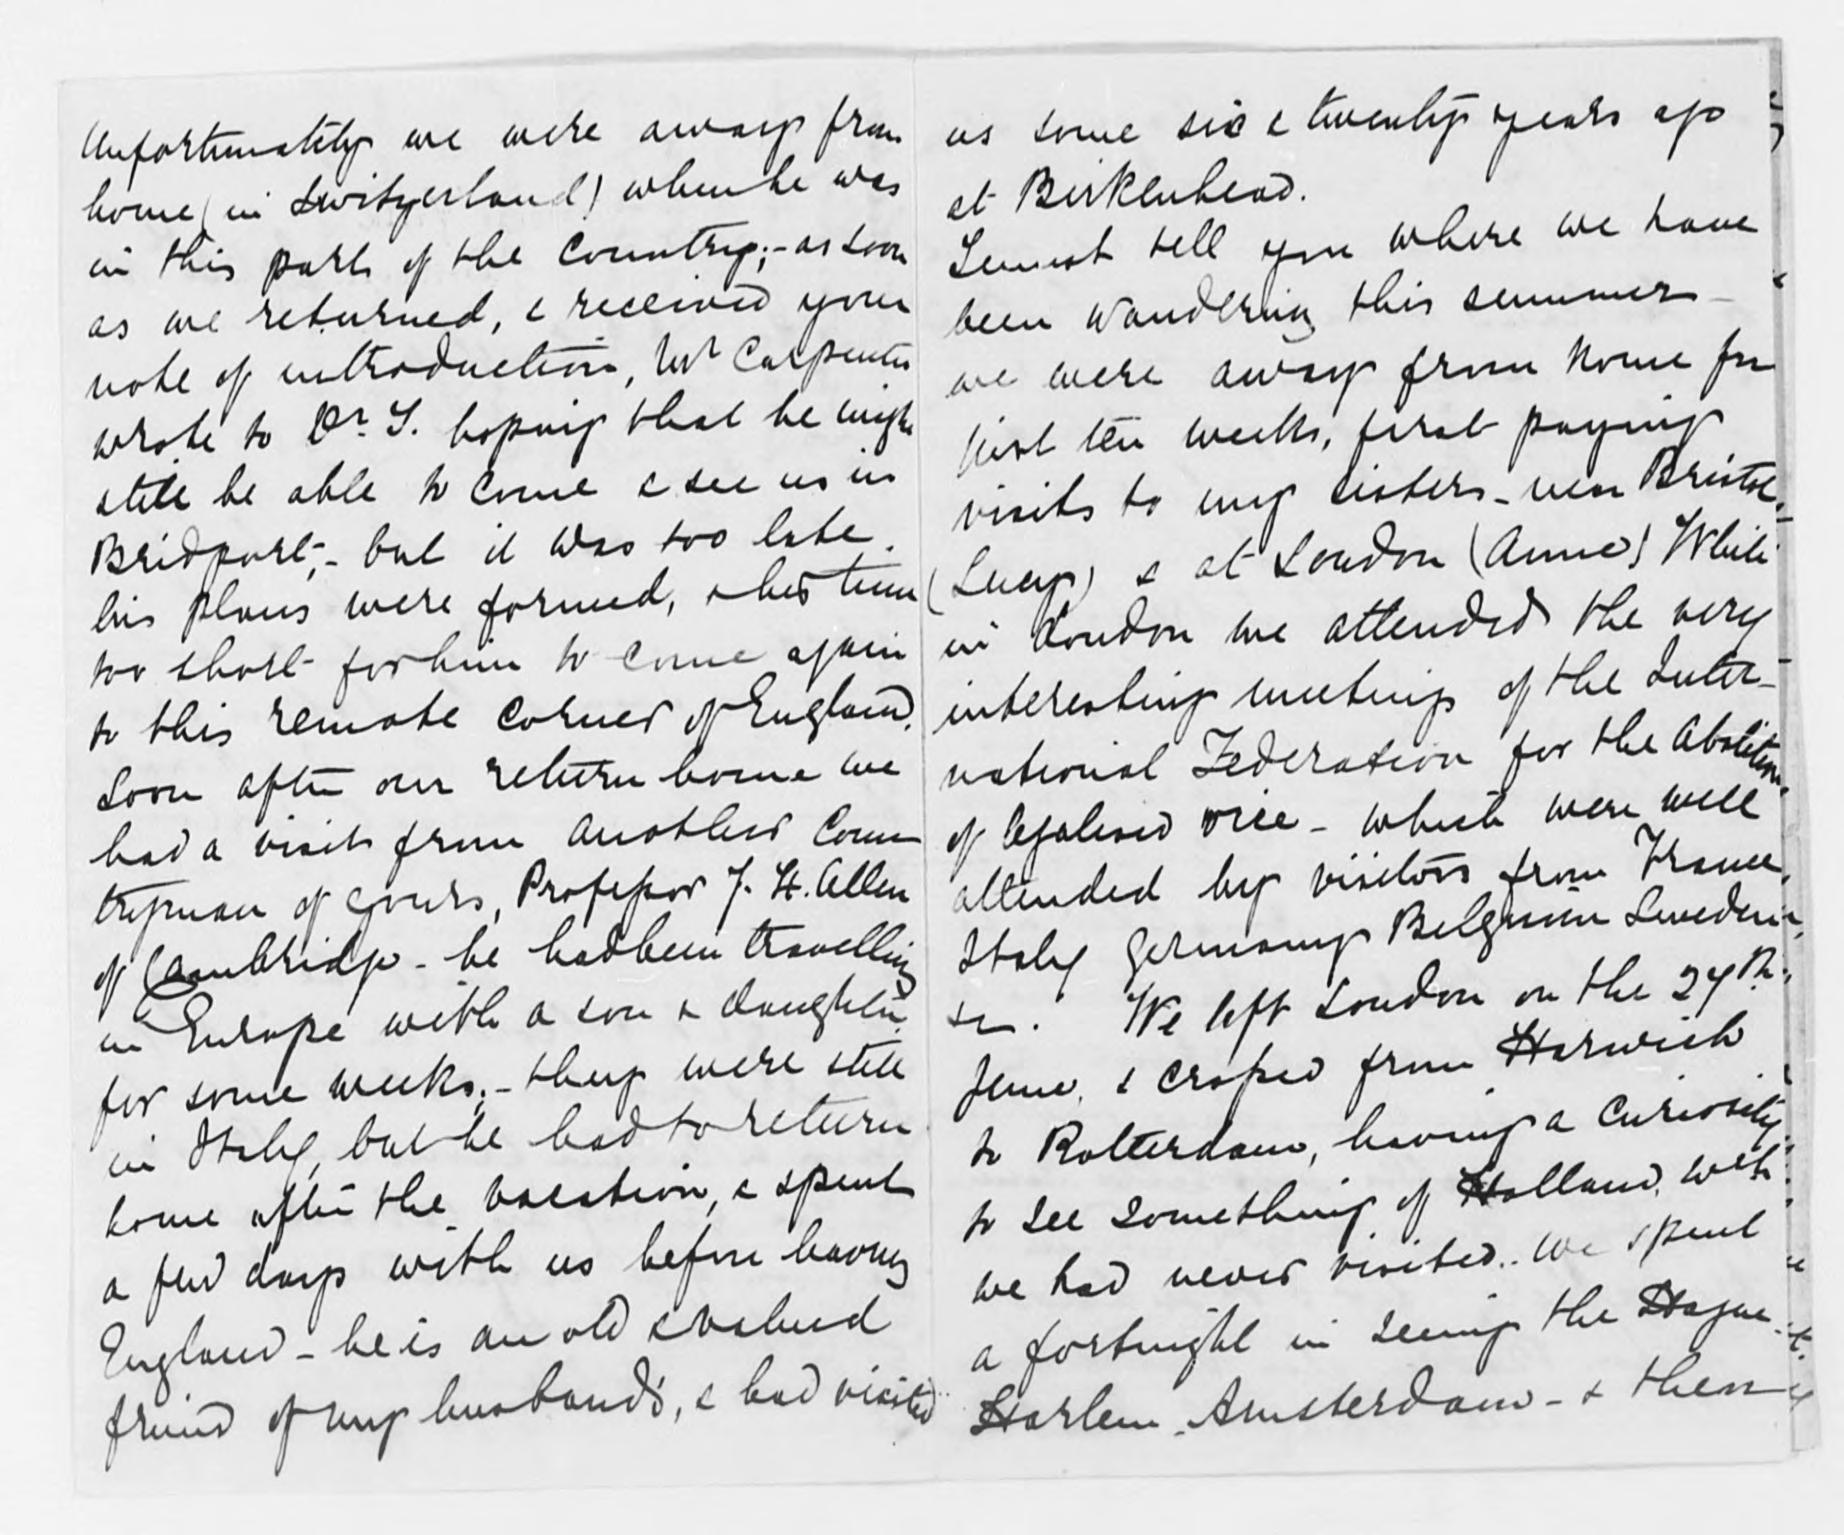 Unfortunately we were away from
home (in Switzerland) when he was
in this part of the Country;- as soon
as we returned, & received your
note of introduction, Mr Carpenter
wrote to Dr. T. hoping that he might
still be able to come & see us in
Bridport;- but it was too late.
his plans were formed, & his time
too short for him to come again
to this remote corner of England.
Soon after our return home we
had a visit from another Coun
tryman of yours, Professor J. H. Allen
of Cambridge - he had been travelling
in Europe with a son & daughter
for some weeks;- they were still
in Italy, but he had to return
home after the vacation, & spent
a few days with us before leaving
England - he is an old & valued
friend of my husband's, & had visited
us some six & twenty years ago
at Birkenhead.
I must tell you where we have
been wandering this summer -
we were away from home for
just ten weeks, first paying
visits to my sisters - near Bristol
(Lucy) & at London (Anne) While
in London we attended the very
interesting meetings of the Inter-
national Federation for the Abolition
of legalised vice - which were well
attended by visitors from France,
Italy Germany Belgium Sweden
&c. We left London on the 27th
June, & crossed from Harwich
to Rotterdam, having a curiosity
to see something of Holland, wch
we had never visited.. We spent
a fortnight in seeing the Hague
Harlem, Amsterdam - & then